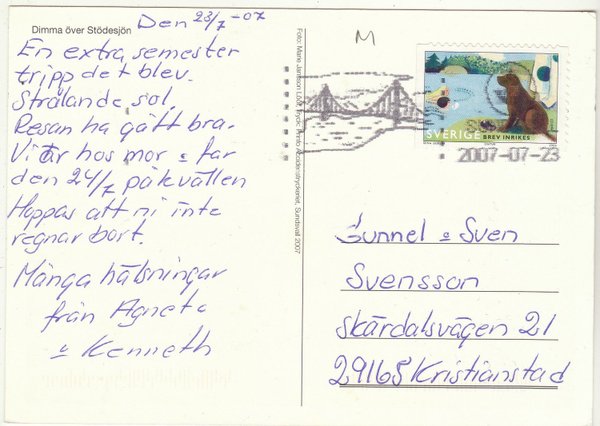 Dimma över Stödesjön
Den 23/7-07
En extra semester
tripp det blev.
Strålande sol.
Resan ha gått bra.
Vi är hos mor o far
den 24/7 på kvällen
Hoppas att ni inte
regnar bort.
Många hälsningar
från Agneta
o Kenneth
M
SVERIGE BREV INRIKES
2007-07-23
Gunnel o Sven
Svensson
Skärdalsvägen 21
29165 Kristianstad